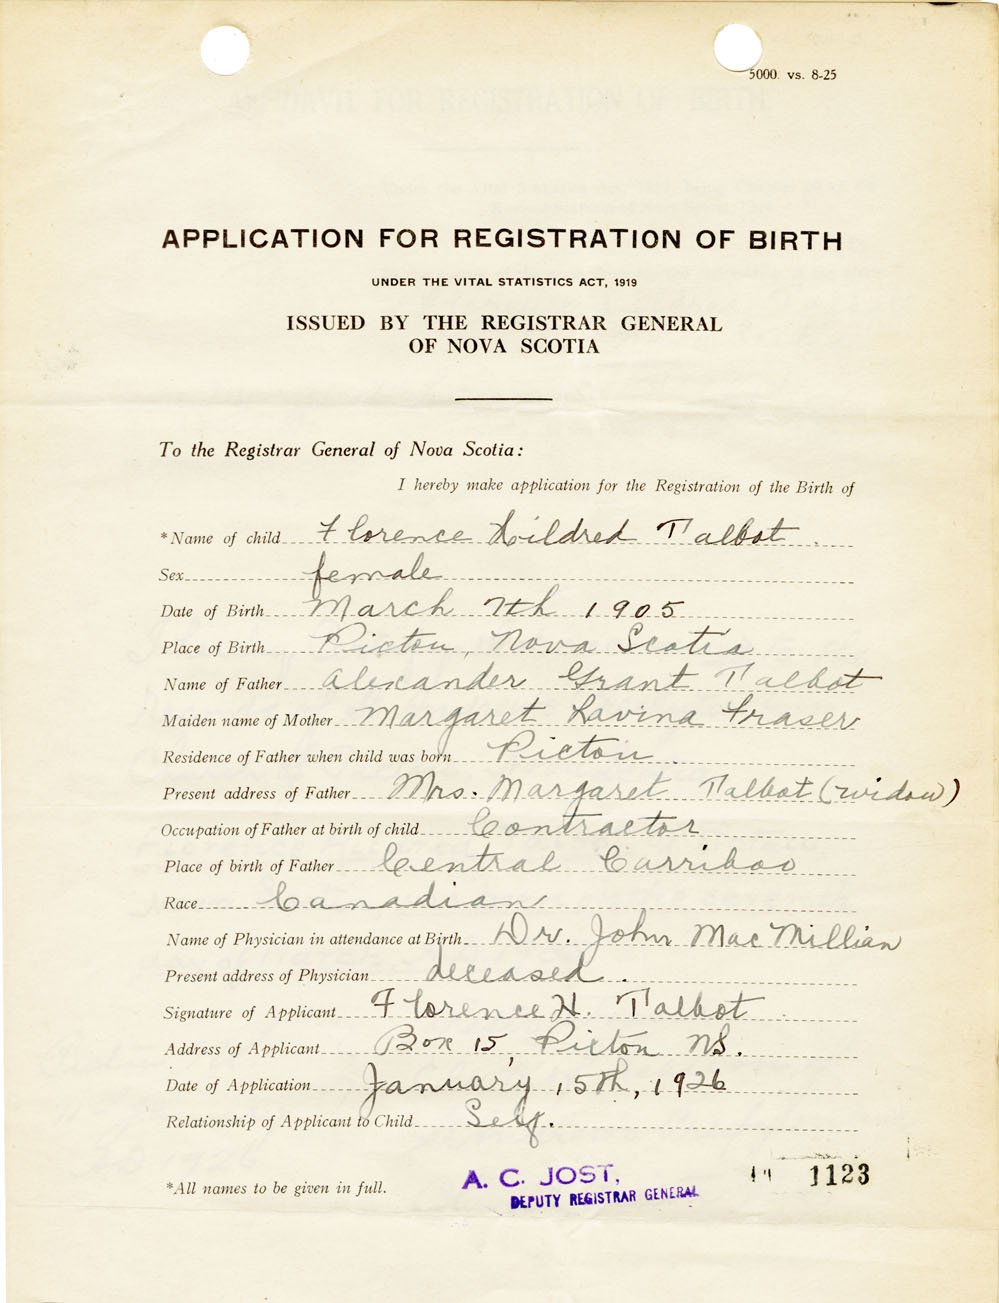 5000. vs. 8-25
APPLICATION FOR REGISTRATION OF BIRTH
UNDER THE VITAL STATISTICS ACT, 1919
ISSUED BY THE REGISTRAR GENERAL
OF NOVA SCOTIA
To the Registrar General of Nova Scotia:
I hereby make application for the Registration of the Birth of
*Name of child Florence Hildred Talbot
Sex female
Date of Birth March 7th 1905
Place of Birth Pictou, Nova Scotia
Name of Father Alexander Grant Talbot
Maiden name of Mother Margaret Lavina Fraser
Residence of Father when child was born Pictou
Present address of Father Mrs. Margaret Talbot (widow)
Occupation of Father at birth of child Contractor
Place of birth of Father Central Carriboo
Race Canadian
Name of Physician in attendance at Birth Dr. John MacMillian
Present address of Physician deceased.
Signature of Applicant Florence H. Talbot
Address of Applicant Box 15, Pictou NS.
Date of Application January 15th, 1926
Relationship of Applicant to Child Self.
*All names to be given in full.
A. C. JOST,
DEPUTY REGISTRAR GENERAL
1123